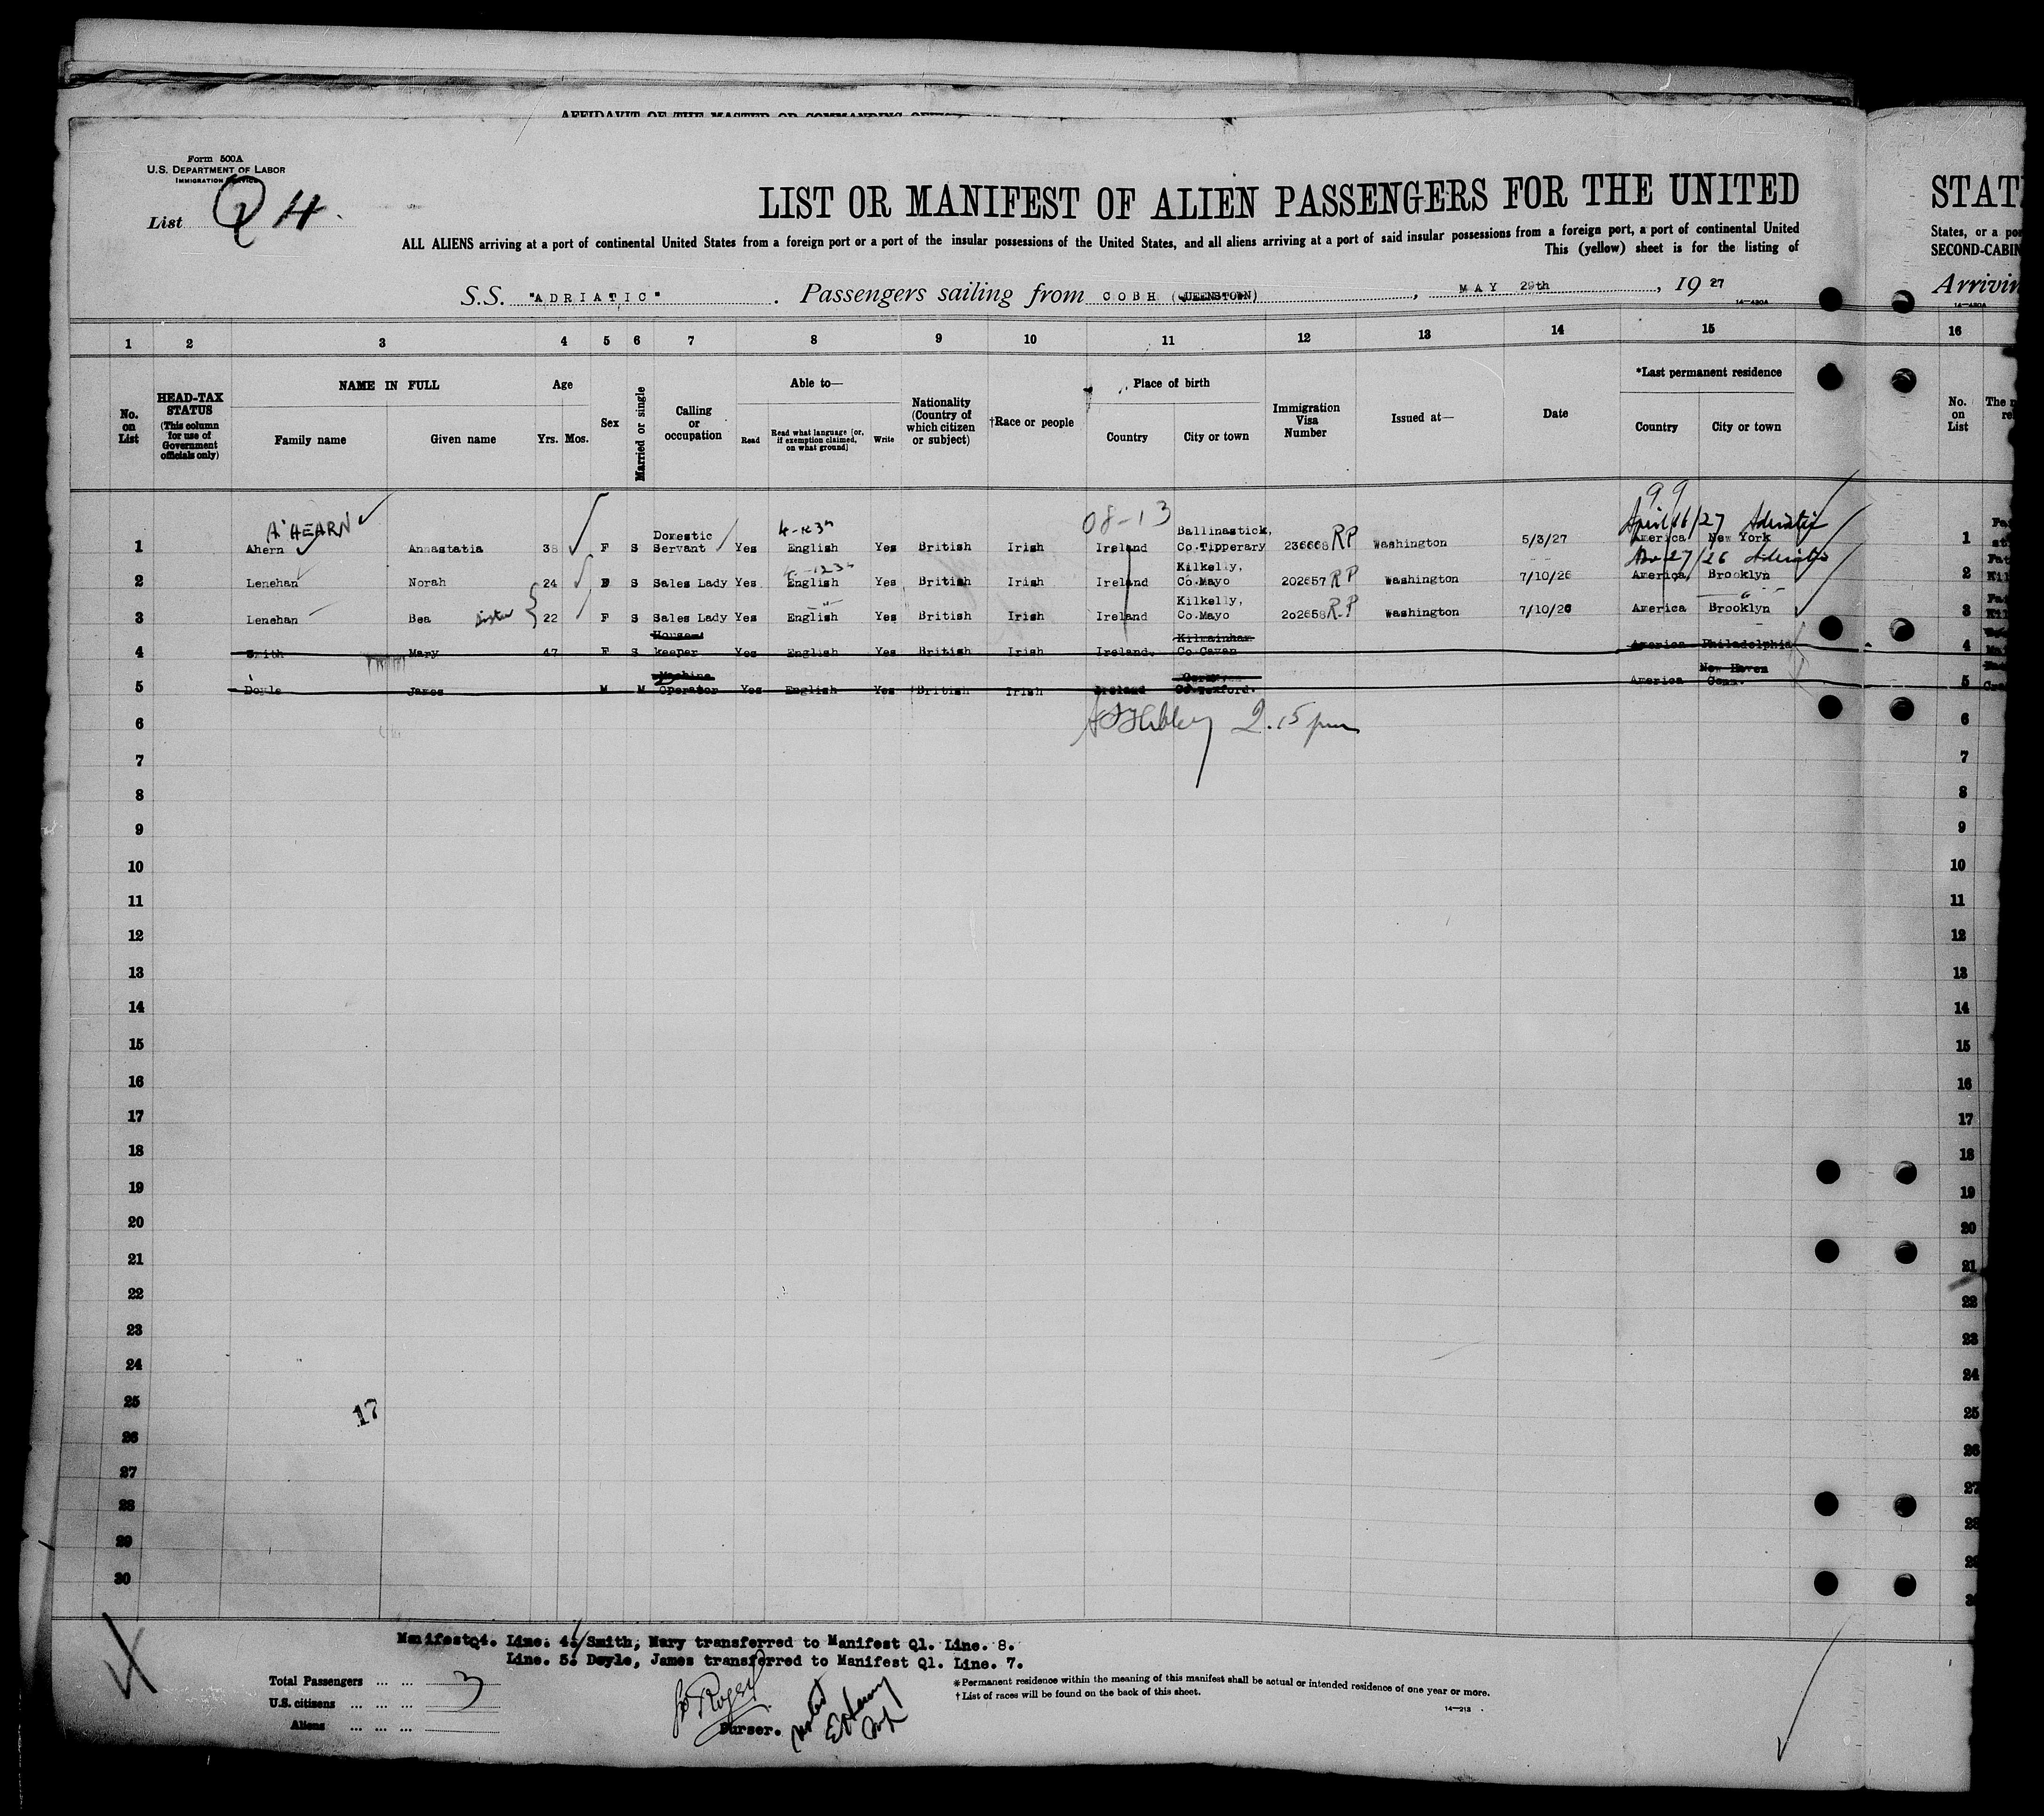 AFFIDAVIT OF THE MASTER OR COMMANDING
Form 500A
U.S. DEPARTMENT OF LABOR
IMMIGRATION SERVICE
List Q 4
LIST OR MANIFEST OF ALIEN PASSENGERS FOR THE UNITED
STAT
ALL ALIENS arriving at a port of continental United States from a foreign port or a port of the insular possessions of the United States, and all aliens arriving at a port of said insular possessions from a foreign port, a port of continental United
States, or a
This (yellow) sheet is for the listing of
SECOND-CABIN
S.S. "ADRIATIC". Passengers sailing from COBH (QUEENSTOWN), MAY 29th, 1927
Arrivin
14—430A
14—430A
1 2 3 4 5 6 7 8 9 10 11 12 13 14 15 16
No. on List
HEAD-TAX STATUS (This column for use of Government officials only)
NAME IN FULL
Family name
Given name
Age
Yrs. Mos.
Sex
Married or single
Calling or occupation
Able to—
Read
Read what language [or, if exemption claimed, on what ground]
Write
Nationality (Country of which citizen or subject)
†Race or people
Place of birth
Country
City or town
Immigration Visa Number
Issued at—
Date
*Last permanent residence
Country
City or town
No. on List
99
A'HEARN 4-1234 08-13 April 16/27 Adriatic
1 Ahern Annastatia 38 F S Domestic Servant Yes English Yes British Irish Ireland Ballinastick, Co.Tipperary 236668 RP Washington 5/3/27 America New York 1
Nov 27/26 Adriatic
2 Lenehan Norah 24 F S Sales Lady Yes English Yes British Irish Ireland Kilkelly, Co.Mayo 202657 RP Washington 7/10/26 America Brooklyn 2
3 Lenehan Bea sister 22 F S Sales Lady Yes English Yes British Irish Ireland Kilkelly, Co.Mayo 202658 R.P Washington 7/10/26 America Brooklyn 3
4 Smith Mary 47 F S House- keeper Yes English Yes British Irish Ireland. Kilmainham Co Cavan America Philadelphia 4
5 Doyle James M M Machine Operator Yes English Yes British Irish Ireland Co.Wexford. America New Haven Conn. 5
6 2.15 pm 6
7 7
8 8
9 9
10 10
11 11
12 12
13 13
14 14
15 15
16 16
17 17
18 18
19 19
20 20
21 21
22 22
23 23
24 24
25 17 25
26 26
27 27
28
29
30
Manifest Q4. Line. 4. Smith, Mary transferred to Manifest Q1. Line. 8.
Line. 5. Doyle, James transferred to Manifest Q1. Line. 7.
Total Passengers ... ... 3
U.S. citizens ... ... ...
Aliens ... ... ...
Purser.
noted
*Permanent residence within the meaning of this manifest shall be actual or intended residence of one year or more.
†List of races will be found on the back of this sheet.
14—213